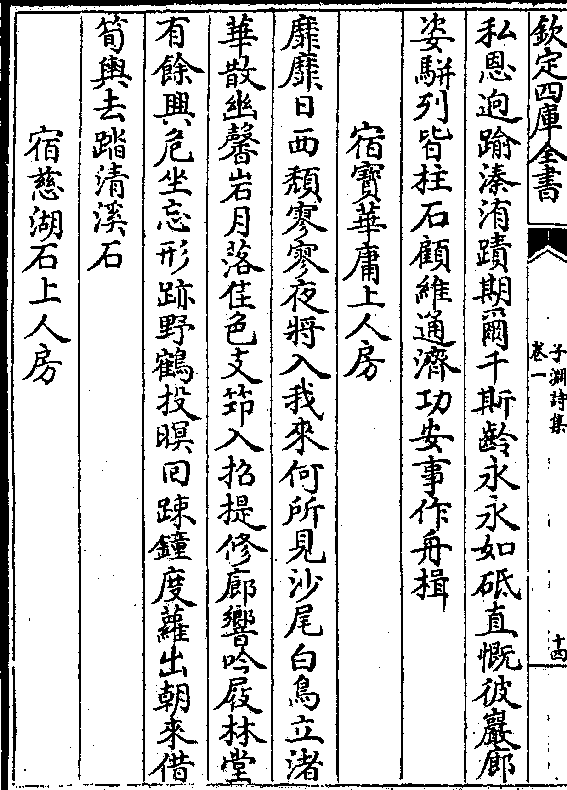 欽定四庫全書
子淵詩集
卷一
十四
私恩逈踰溱洧蹟期爾千斯齡永永如砥直慨彼巖廊
姿駢列皆柱石顧維通濟功安事作舟楫
宿寶華庸上人房
靡靡日西頽寥寥夜將入我來何所見沙尾白鳥立渚
華散幽馨岩月落佳色支笻入招提修廊響吟屐林堂
有餘興危坐忘形跡野鶴投暝囘踈鐘度蘿出朝來借
筍輿去踏清溪石
宿慈湖石上人房